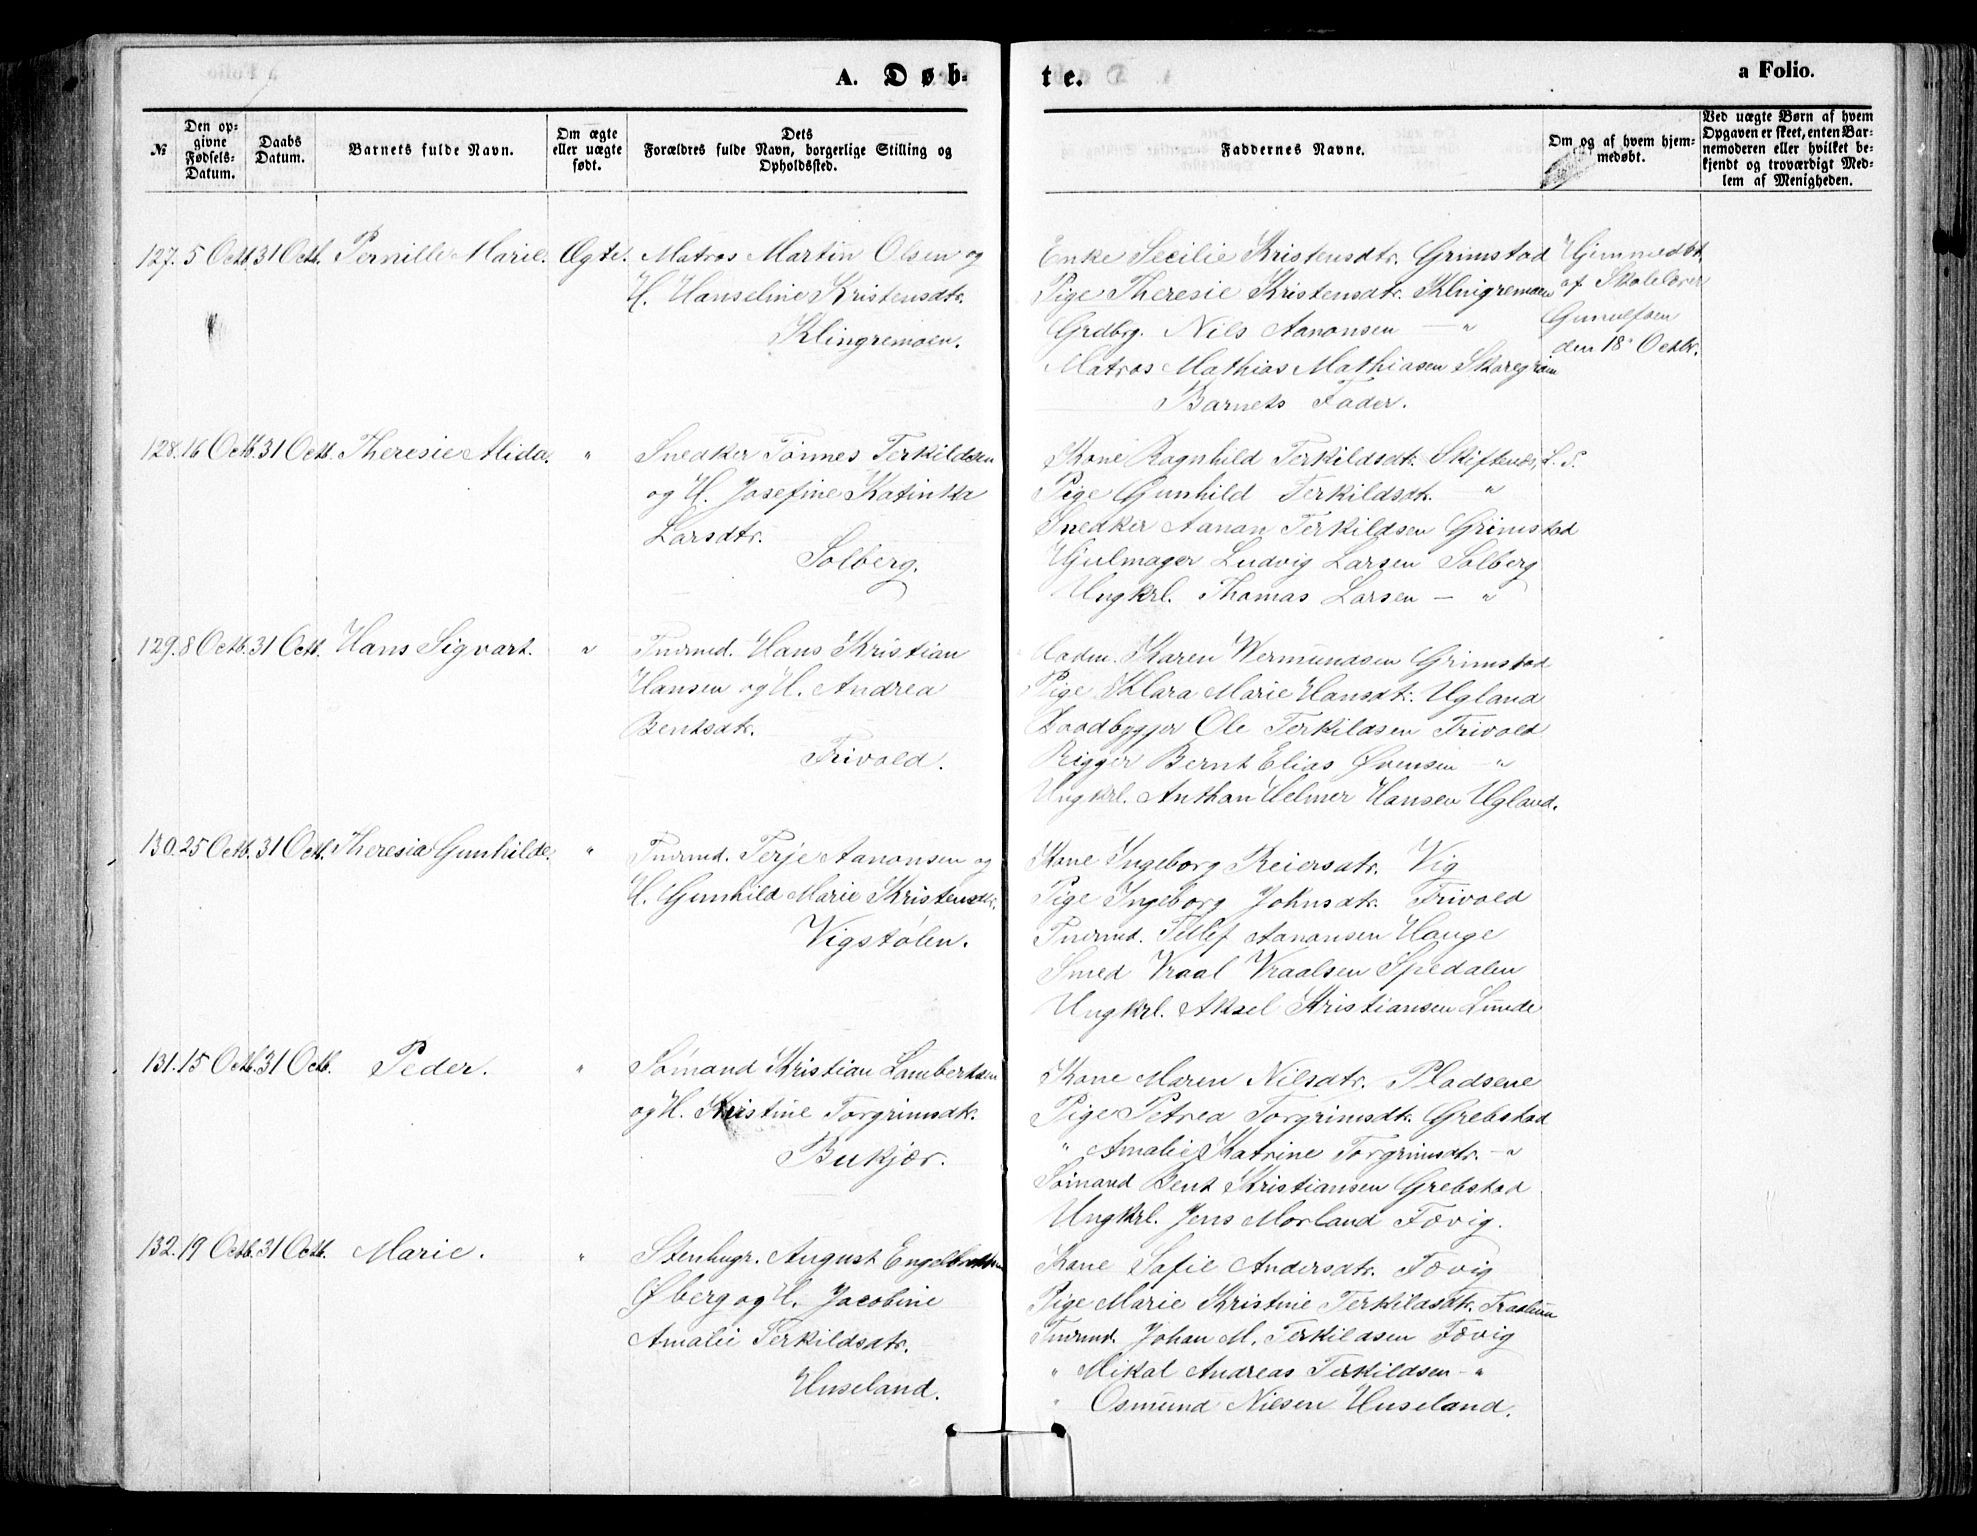 A. Døb-
te.
a Folio.
№
Den op-
givne
Fødsels-
Datum.
Daabs
Datum.
Barnets fulde Navn.
Om ægte
eller uægte
født.
Dets
Forældres fulde Navn, borgerlige Stilling og
Opholdssted.
Faddernes Navne.
Om og af hvem hjem-
medøbt.
Ved uægte Børn af hvem
Opgaven er skeet, enten Bar-
nemoderen eller hvilket be-
kjendt og troværdigt Med-
lem af Menigheden.
127. 5 Octb. 31 Octb. Pernille Marie. Ægte. Matros Martin Olsen og
H. Hanseline Kristensdtr.
Klingremoen.
Enke Secilie Kristensdtr. Grimstad
Pige Theresie Kristensdtr. Klingremoen
Grdbrg. Nils Aanonsen — "
Matros Mathias Mathiasen
Barnets Fader.
Hjemmedbt.
af Skolelærer
Gunulfsen
den 18 Octbr.
128. 16 Octb. 31 Octb. Theresie Alida. " Snedker Tønnes Terkildsen
og H. Josefine Katinka
Larsdtr.
Solberg.
Kone Ragnhild Terkildsdtr. Skiftenes, L. S.
Pige Gunhild Terkildsdtr. "
Snedker Aanan Terkildsen Grimstad
Hjulmager Ludvig Larsen Solberg
Ungkrl. Thomas Larsen — "
129. 8 Octb. 31 Octb. Hans Sigvart. " Tmrmd. Hans Kristian
Hansen og H. Andrea
Bentsdtr.
Frivold.
Karen Wermundsen Grimstad
Pige Klara Marie Hansdtr. Ugland
Baadbygger Ole Terkildsen Frivold
Rigger Bernt Elias Øvensen — "
Ungkrl. Anthan Helmer Hansen Ugland.
130. 25 Octb. 31 Octb. Theresia Gunhilde. " Tmrmd. Terje Aanonsen og
H. Gunhild Marie Kristensdtr.
Vigstølen.
Kone Ingeborg Reiersdtr. Vig
Pige Ingeborg Johnsdtr. Frivold
Tmrmd. Tellef Aanonsen Hauge
Smed Vraal Vraalsen Spedalen
Ungkrl. Aksel Kristiansen Lunde
131. 15 Octb. 31 Octb. Peder. " Sømand Kristian Lambertsen
og H. Kristine Torgrimsdtr.
Bukjær.
Kone Maren Nilsdtr. Pladsene
Pige Petrea Torgrimsdtr. Grebstad
" Amalie Katrine Torgrimsdtr. — "
Sømand Bent Kristiansen Grebstad
Ungkrl. Jens Morland Fævig.
132. 19 Octb. 31 Octb. Marie. " Stenhugr. August Engelbretsen
Øberg og H. Jacobine
Amalie Terkildsdtr.
Huseland.
Kone Sofie Andersdtr. Fævig
Pige Marie Kristine Terkildsdtr.
Tmrmd. Johan M. Terkildsen Fævig
" Mikal Andreas Terkildsen — "
" Osmund Nilsen Huseland.